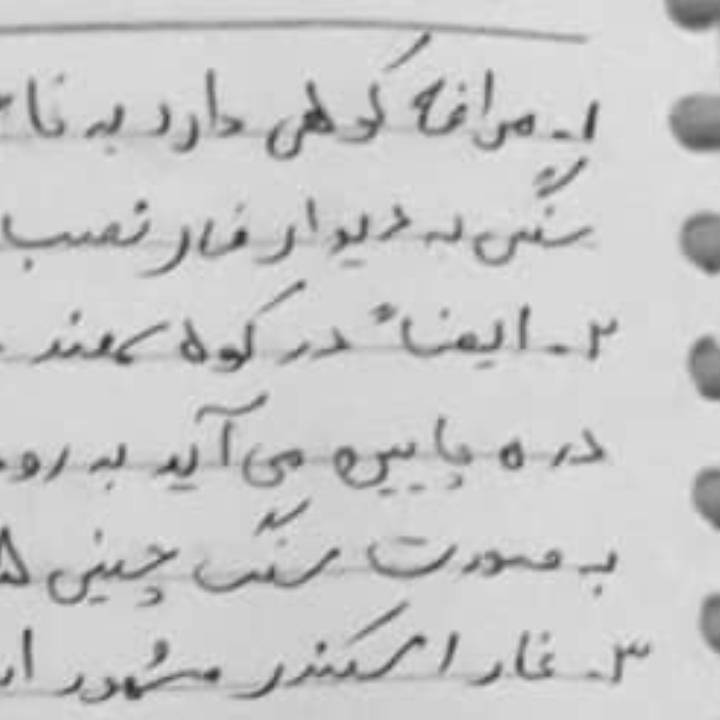 ۱- مراغه کوهی دارد به نا
سنگی به دیوار غار نصب
۲- ایضاً در کوه سهند
دره پایین می آید به رو
به صورت سنگ چینی ۵
۳- غار اسکندر مشهور